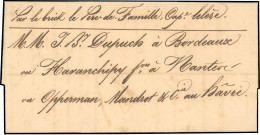 Par le brick le Père de Famille, Capne
M.M. J. Bte Dupuch à Bordeaux
ou Haranchipy fres à Nantes
ou Opperman, Mandrot & Cie au Hâvre